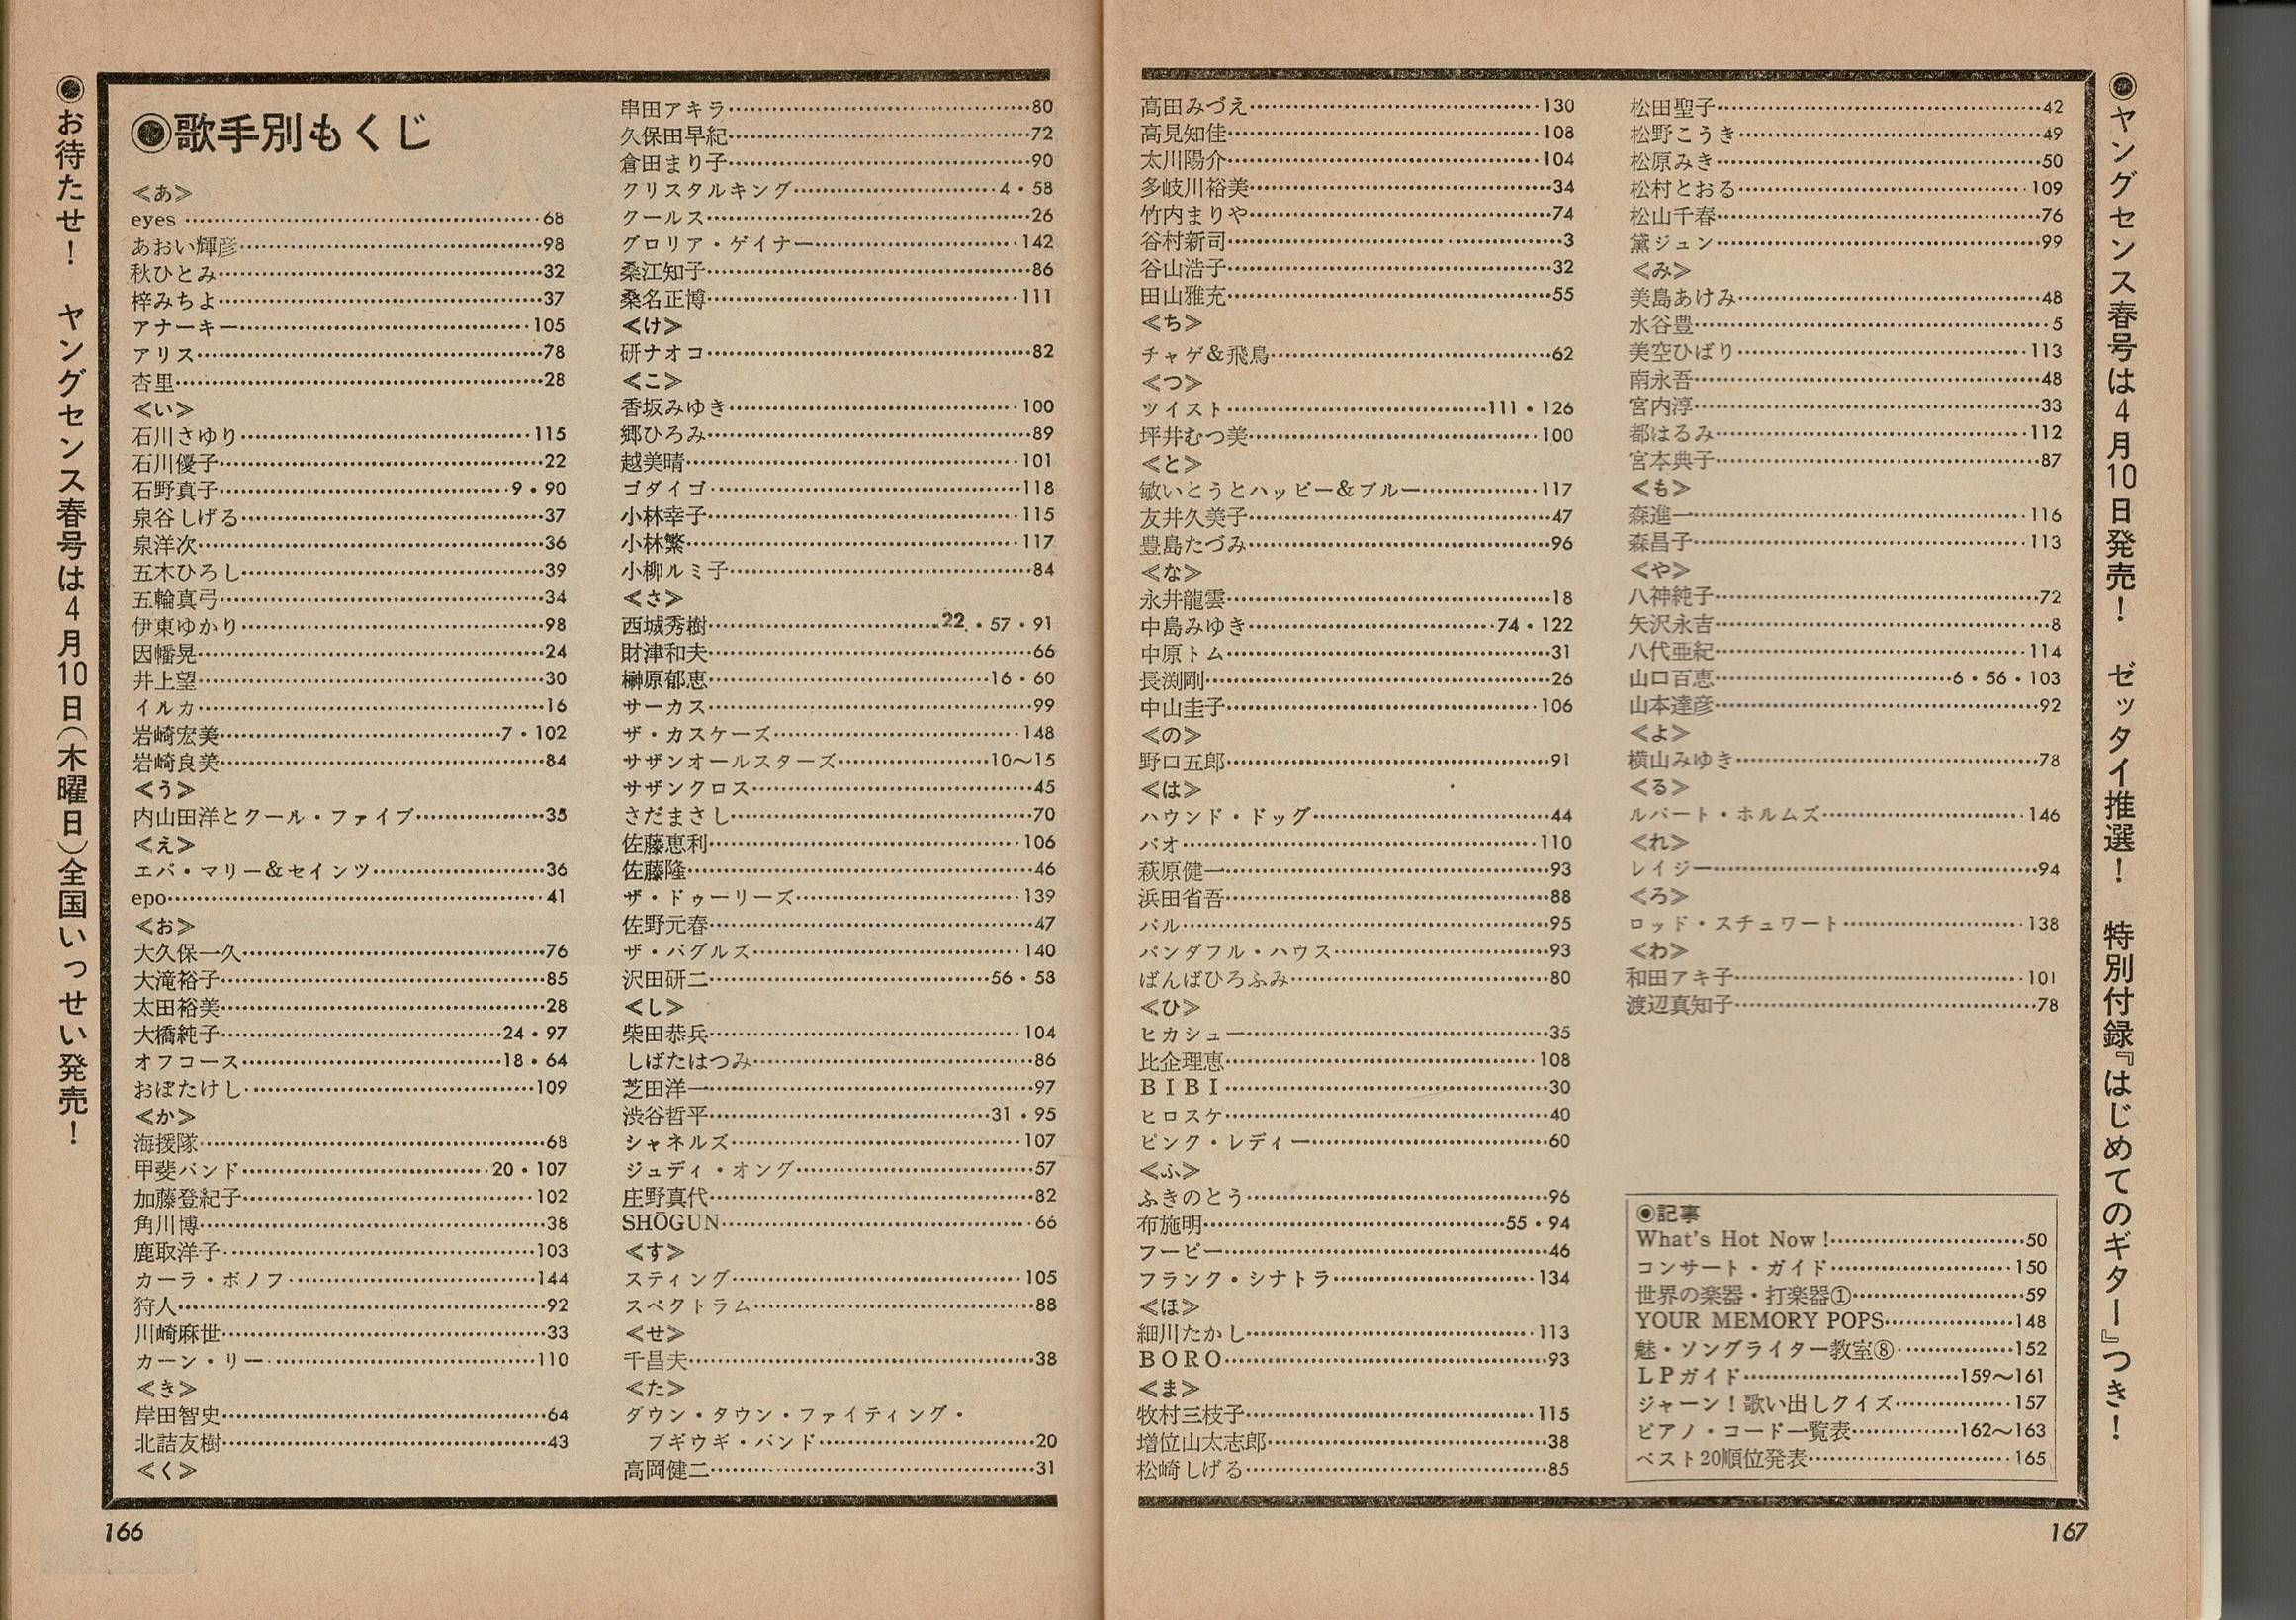 ●お待たせ！　ヤングセンス春号は4月10日（木曜日）全国いっせい発売！
◉歌手別もくじ
≪あ≫
eyes…68
あおい輝彦…98
秋ひとみ…32
梓みちよ…37
アナーキー…105
アリス…78
杏里…28
≪い≫
石川さゆり…115
石川優子…22
石野真子…9・90
泉谷しげる…37
泉洋次…36
五木ひろし…39
五輪真弓…34
伊東ゆかり…98
因幡晃…24
井上望…30
イルカ…16
岩崎宏美…7・102
岩崎良美…84
≪う≫
内山田洋とクール・ファイブ…35
≪え≫
エバ・マリー&セインツ…36
epo…41
≪お≫
大久保一久…76
大滝裕子…85
太田裕美…28
大橋純子…24・97
オフコース…18・64
おぼたけし…109
≪か≫
海援隊…68
甲斐バンド…20・107
加藤登紀子…102
角川博…38
鹿取洋子…103
カーラ・ボノフ…144
狩人…92
川崎麻世…33
カーン・リー…110
≪き≫
岸田智史…64
北詰友樹…43
≪く≫
串田アキラ…80
久保田早紀…72
倉田まり子…90
クリスタルキング…4・58
クールス…26
グロリア・ゲイナー…142
桑江知子…86
桑名正博…111
≪け≫
研ナオコ…82
≪こ≫
香坂みゆき…100
郷ひろみ…89
越美晴…101
ゴダイゴ…118
小林幸子…115
小林繁…117
小柳ルミ子…84
≪さ≫
西城秀樹…22・57・91
財津和夫…66
榊原郁恵…16・60
サーカス…99
ザ・カスケーズ…148
サザンオールスターズ…10〜15
サザンクロス…45
さだまさし…70
佐藤恵利…106
佐藤隆…46
ザ・ドゥーリーズ…139
佐野元春…47
ザ・バグルズ…140
沢田研二…56・58
≪し≫
柴田恭兵…104
しばたはつみ…86
芝田洋一…97
渋谷哲平…31・95
シャネルズ…107
ジュディ・オング…57
庄野真代…82
SHŌGUN…66
≪す≫
スティング…105
スペクトラム…88
≪せ≫
千昌夫…38
≪た≫
ダウン・タウン・ファイティング・
ブギウギ・バンド…20
高岡健二…31
166
高田みづえ…130
高見知佳…108
太川陽介…104
多岐川裕美…34
竹内まりや…74
谷村新司…3
谷山浩子…32
田山雅充…55
≪ち≫
チャゲ&飛鳥…62
≪つ≫
ツイスト…111・126
坪井むつ美…100
≪と≫
敏いとうとハッピー&ブルー…117
友井久美子…47
豊島たづみ…96
≪な≫
永井龍雲…18
中島みゆき…74・122
中原トム…31
長渕剛…26
中山圭子…106
≪の≫
野口五郎…91
≪は≫
ハウンド・ドッグ…44
バオ…110
萩原健一…93
浜田省吾…88
バル…95
バンダフル・ハウス…93
ばんばひろふみ…80
≪ひ≫
ヒカシュー…35
比企理恵…108
BIBI…30
ヒロスケ…40
ピンク・レディー…60
≪ふ≫
ふきのとう…96
布施明…55・94
フーピー…46
フランク・シナトラ…134
≪ほ≫
細川たかし…113
BORO…93
≪ま≫
牧村三枝子…115
増位山太志郎…38
松崎しげる…85
松田聖子…42
松野こうき…49
松原みき…50
松村とおる…109
松山千春…76
黛ジュン…99
≪み≫
美島あけみ…48
水谷豊…5
美空ひばり…113
南永吾…48
宮内淳…33
都はるみ…112
宮本典子…87
≪も≫
森進一…116
森昌子…113
≪や≫
八神純子…72
矢沢永吉…8
八代亜紀…114
山口百恵…6・56・103
山本達彦…92
≪よ≫
横山みゆき…78
≪る≫
ルパート・ホルムズ…146
≪れ≫
レイジー…94
≪ろ≫
ロッド・スチュワート…138
≪わ≫
和田アキ子…101
渡辺真知子…78
◉記事
What's Hot Now!…50
コンサート・ガイド…150
世界の楽器・打楽器①…59
YOUR MEMORY POPS…148
魅・ソングライター教室⑧…152
LPガイド…159〜161
ジャーン！歌い出しクイズ…157
ピアノ・コード一覧表…162〜163
ベスト20順位発表…165
◉ヤングセンス春号は4月10日発売！　ゼッタイ推選！　特別付録『はじめてのギター』つき！
167